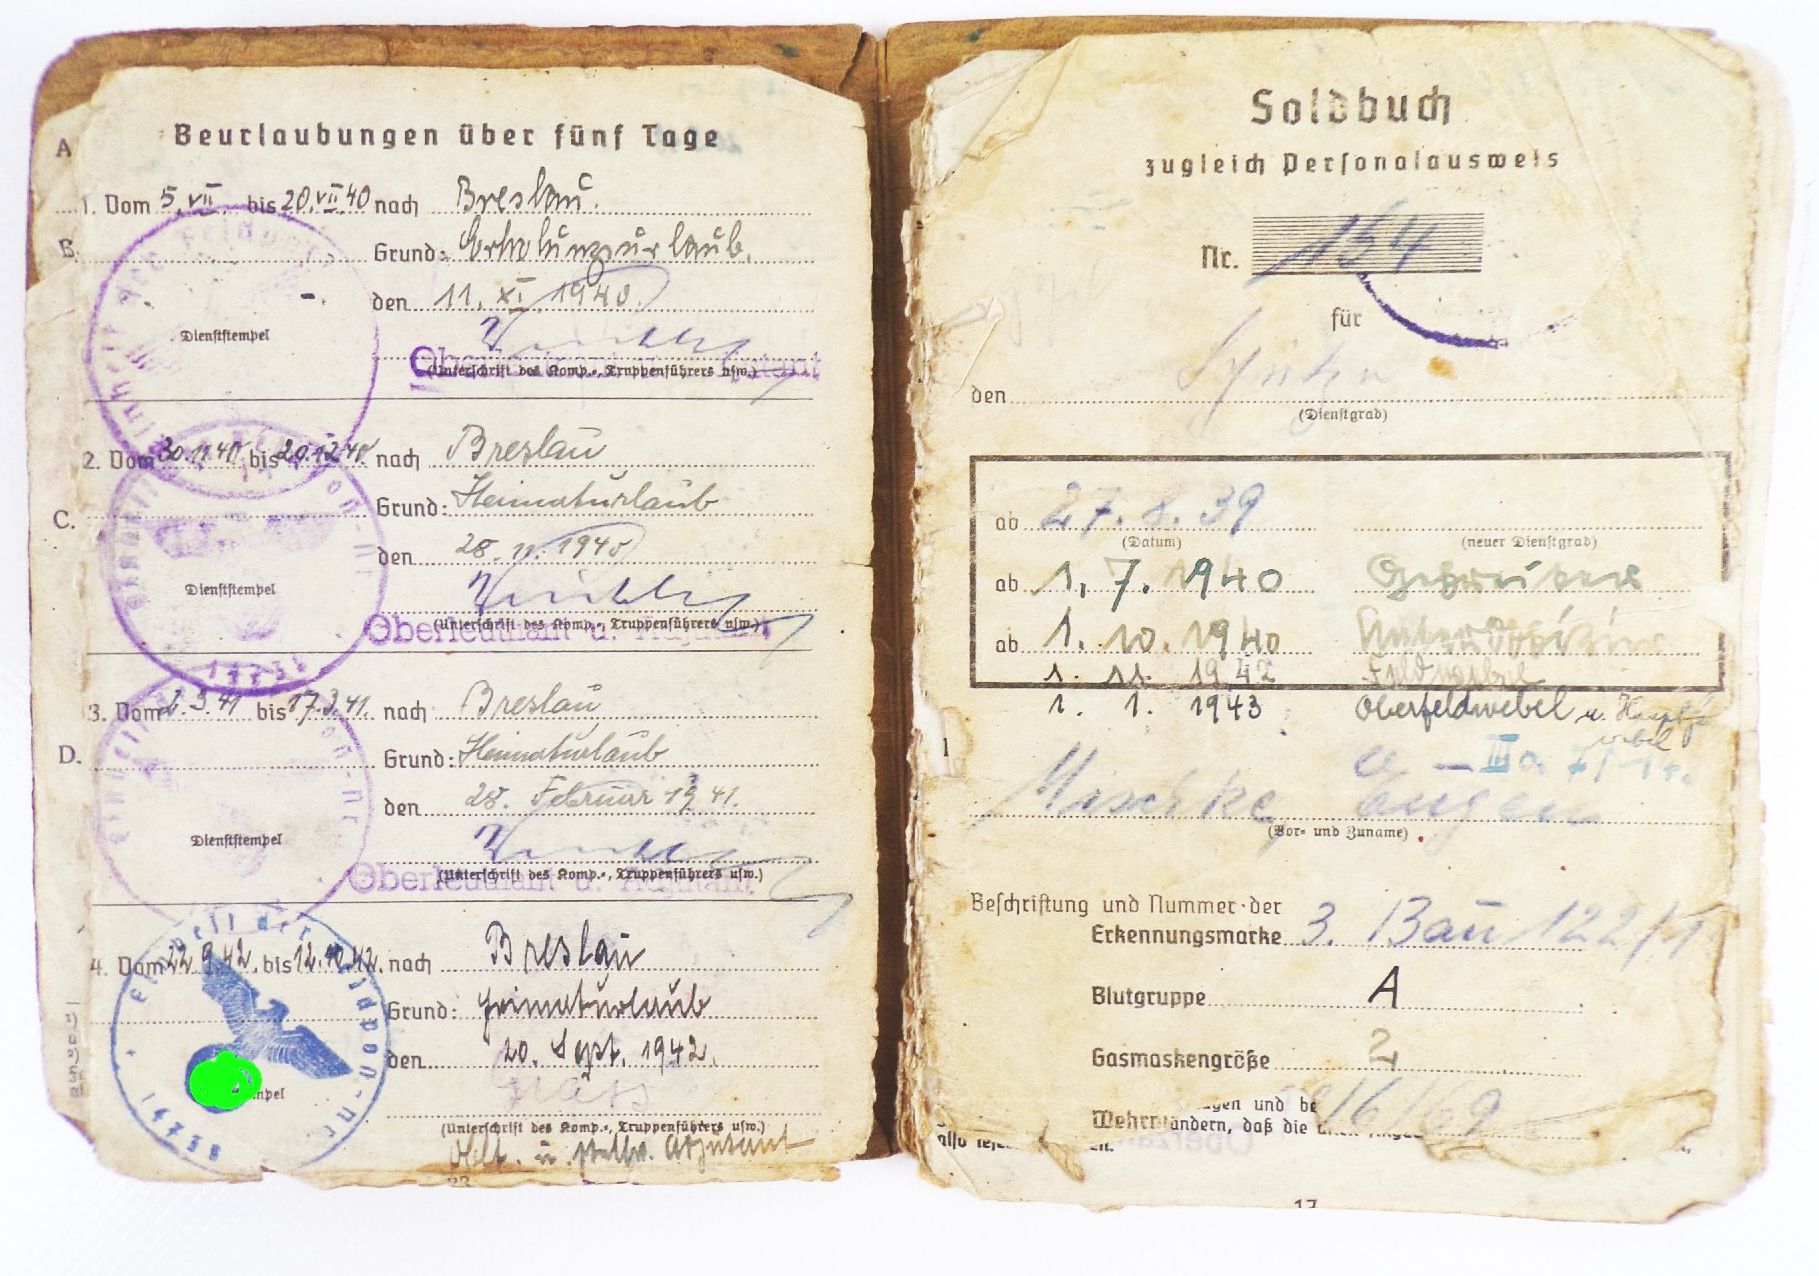 A
Beurlaubungen über fünf Tage
1. Vom 5. VII. bis 20. VII. 40 nach Breslau.
B.
Grund: Erholungsurlaub.
den 11. XI. 1940.
Dienststempel
Oberleutnant u. Adjutant
(Unterschrift des Komp.-, Truppenführers usw.)
2. Vom 30.11.40 bis 20.12.40 nach Breslau
Grund: Heimaturlaub
C.
den 28. 11. 1940
Dienststempel
(Unterschrift des Komp.-, Truppenführers usw.)
Oberleutnant u. Adjutant
3. Vom 2.3.41 bis 17.3.41. nach Breslau
D.
Grund: Heimaturlaub
den 28. Februar 1941.
Dienststempel
(Unterschrift des Komp.-, Truppenführers usw.)
Oberleutnant u. Adjutant
4. Vom 22.9.42. bis 12.10.42. nach Breslau
Grund: Heimaturlaub
den 20. Sept. 1942.
(Unterschrift des Komp.-, Truppenführers usw.)
Oblt. u. stellv. Adjutant
Soldbuch
zugleich Personalausweis
Nr. 154
für
den
(Dienstgrad)
ab 27. 8. 39
(Datum) (neuer Dienstgrad)
ab 1. 7. 1940 Gefreiter
ab 1. 10. 1940 Unteroffizier
1. 11. 1942 Feldwebel
1. 1. 1943 Oberfeldwebel u. Hauptf.
webel
1
Mischke Eugen
(Vor- und Zuname)
Beschriftung und Nummer der
Erkennungsmarke 3. Bau 122/1
Blutgruppe A
Gasmaskengröße 2
Wehrn
ändern, daß die
17